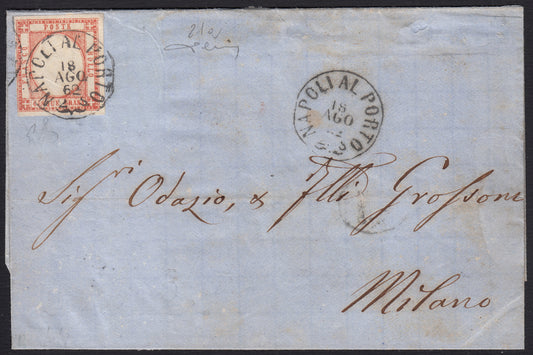 POSTA
NAPOLI AL PORTO
18
AGO
62
NAPOLI AL PORTO
18
AGO
62
Sig.ri Odazio, & f.lli Grossoni
Milano